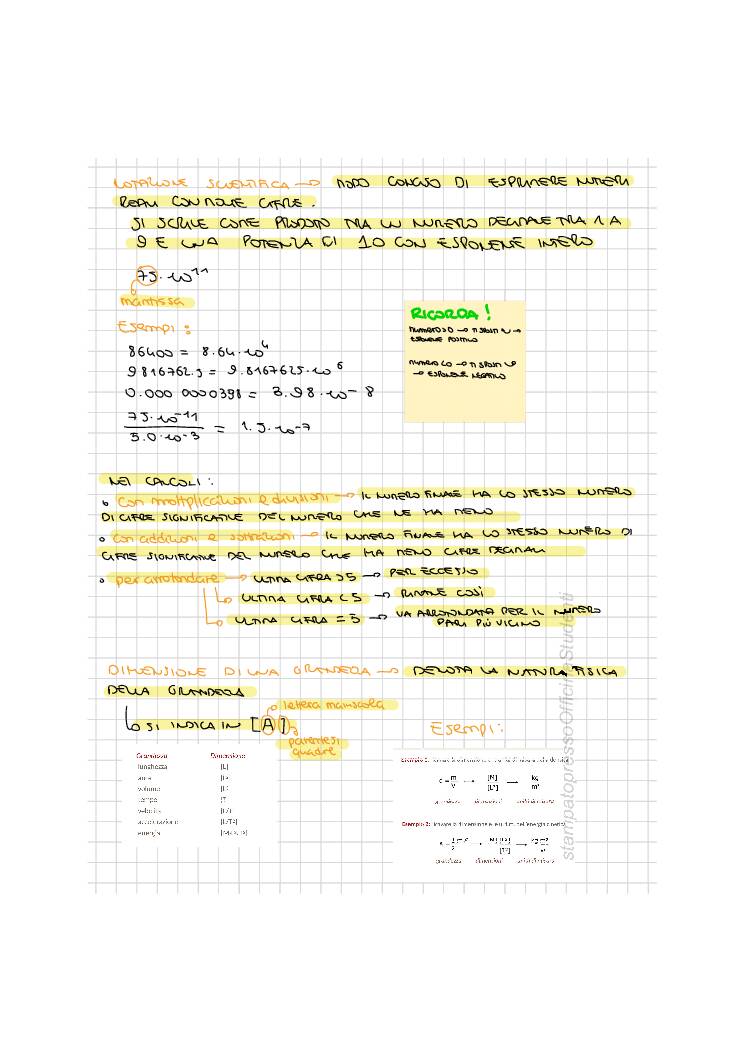 NOTAZIONE SCIENTIFICA → MODO CONCISO DI ESPRIMERE NUMERI
REALI CON MOLTE CIFRE.
SI SCRIVE COME PRODOTTO TRA UN NUMERO DECIMALE TRA 1 A
9 E UNA POTENZA DI 10 CON ESPONENTE INTERO
75·10¹¹
mantissa
Esempi:
86400 = 8.64·10⁴
9816762.5 = 9.8167625·10⁶
0.000 0000398 = 3.98·10⁻⁸
75·10⁻¹¹
5.0·10⁻³
= 1.5·10⁻⁷
RICORDA!
NUMERO >0 → TI SPOSTI →
ESPONENTE POSITIVO
NUMERO <0 → TI SPOSTI
→ ESPONENTE NEGATIVO
NEI CALCOLI:
• con moltiplicazioni e divisioni → IL NUMERO FINALE HA LO STESSO NUMERO
DI CIFRE SIGNIFICATIVE DEL NUMERO CHE NE HA MENO
• con addizioni e sottrazioni → IL NUMERO FINALE HA LO STESSO NUMERO DI
CIFRE SIGNIFICATIVE DEL NUMERO CHE HA MENO CIFRE DECIMALI
• per arrotondare → ULTIMA CIFRA >5 → PER ECCESSO
ULTIMA CIFRA <5 → RIMANE COSÌ
ULTIMA CIFRA =5 → VA ARROTONDATA PER IL NUMERO
PARI PIÙ VICINO
DIMENSIONE DI UNA GRANDEZZA → DENOTA LA NATURA FISICA
DELLA GRANDEZZA
lettera maiuscola
SI INDICA IN [A]
parentesi
quadre
Esempi:
Grandezza Dimensione
lunghezza [L]
area [L²]
volume [L³]
tempo [T]
velocità [L/T]
accelerazione [L/T²]
energia
Esempio 1:
d = m/V → [M]/[L³] → kg/m³
grandezza dimensioni unità di misura
Esempio 2: ricavare la dimensione e le u.d.m. dell'energia cinetica
grandezza dimensioni unità di misura
stampatopressoOfficinaStudenti